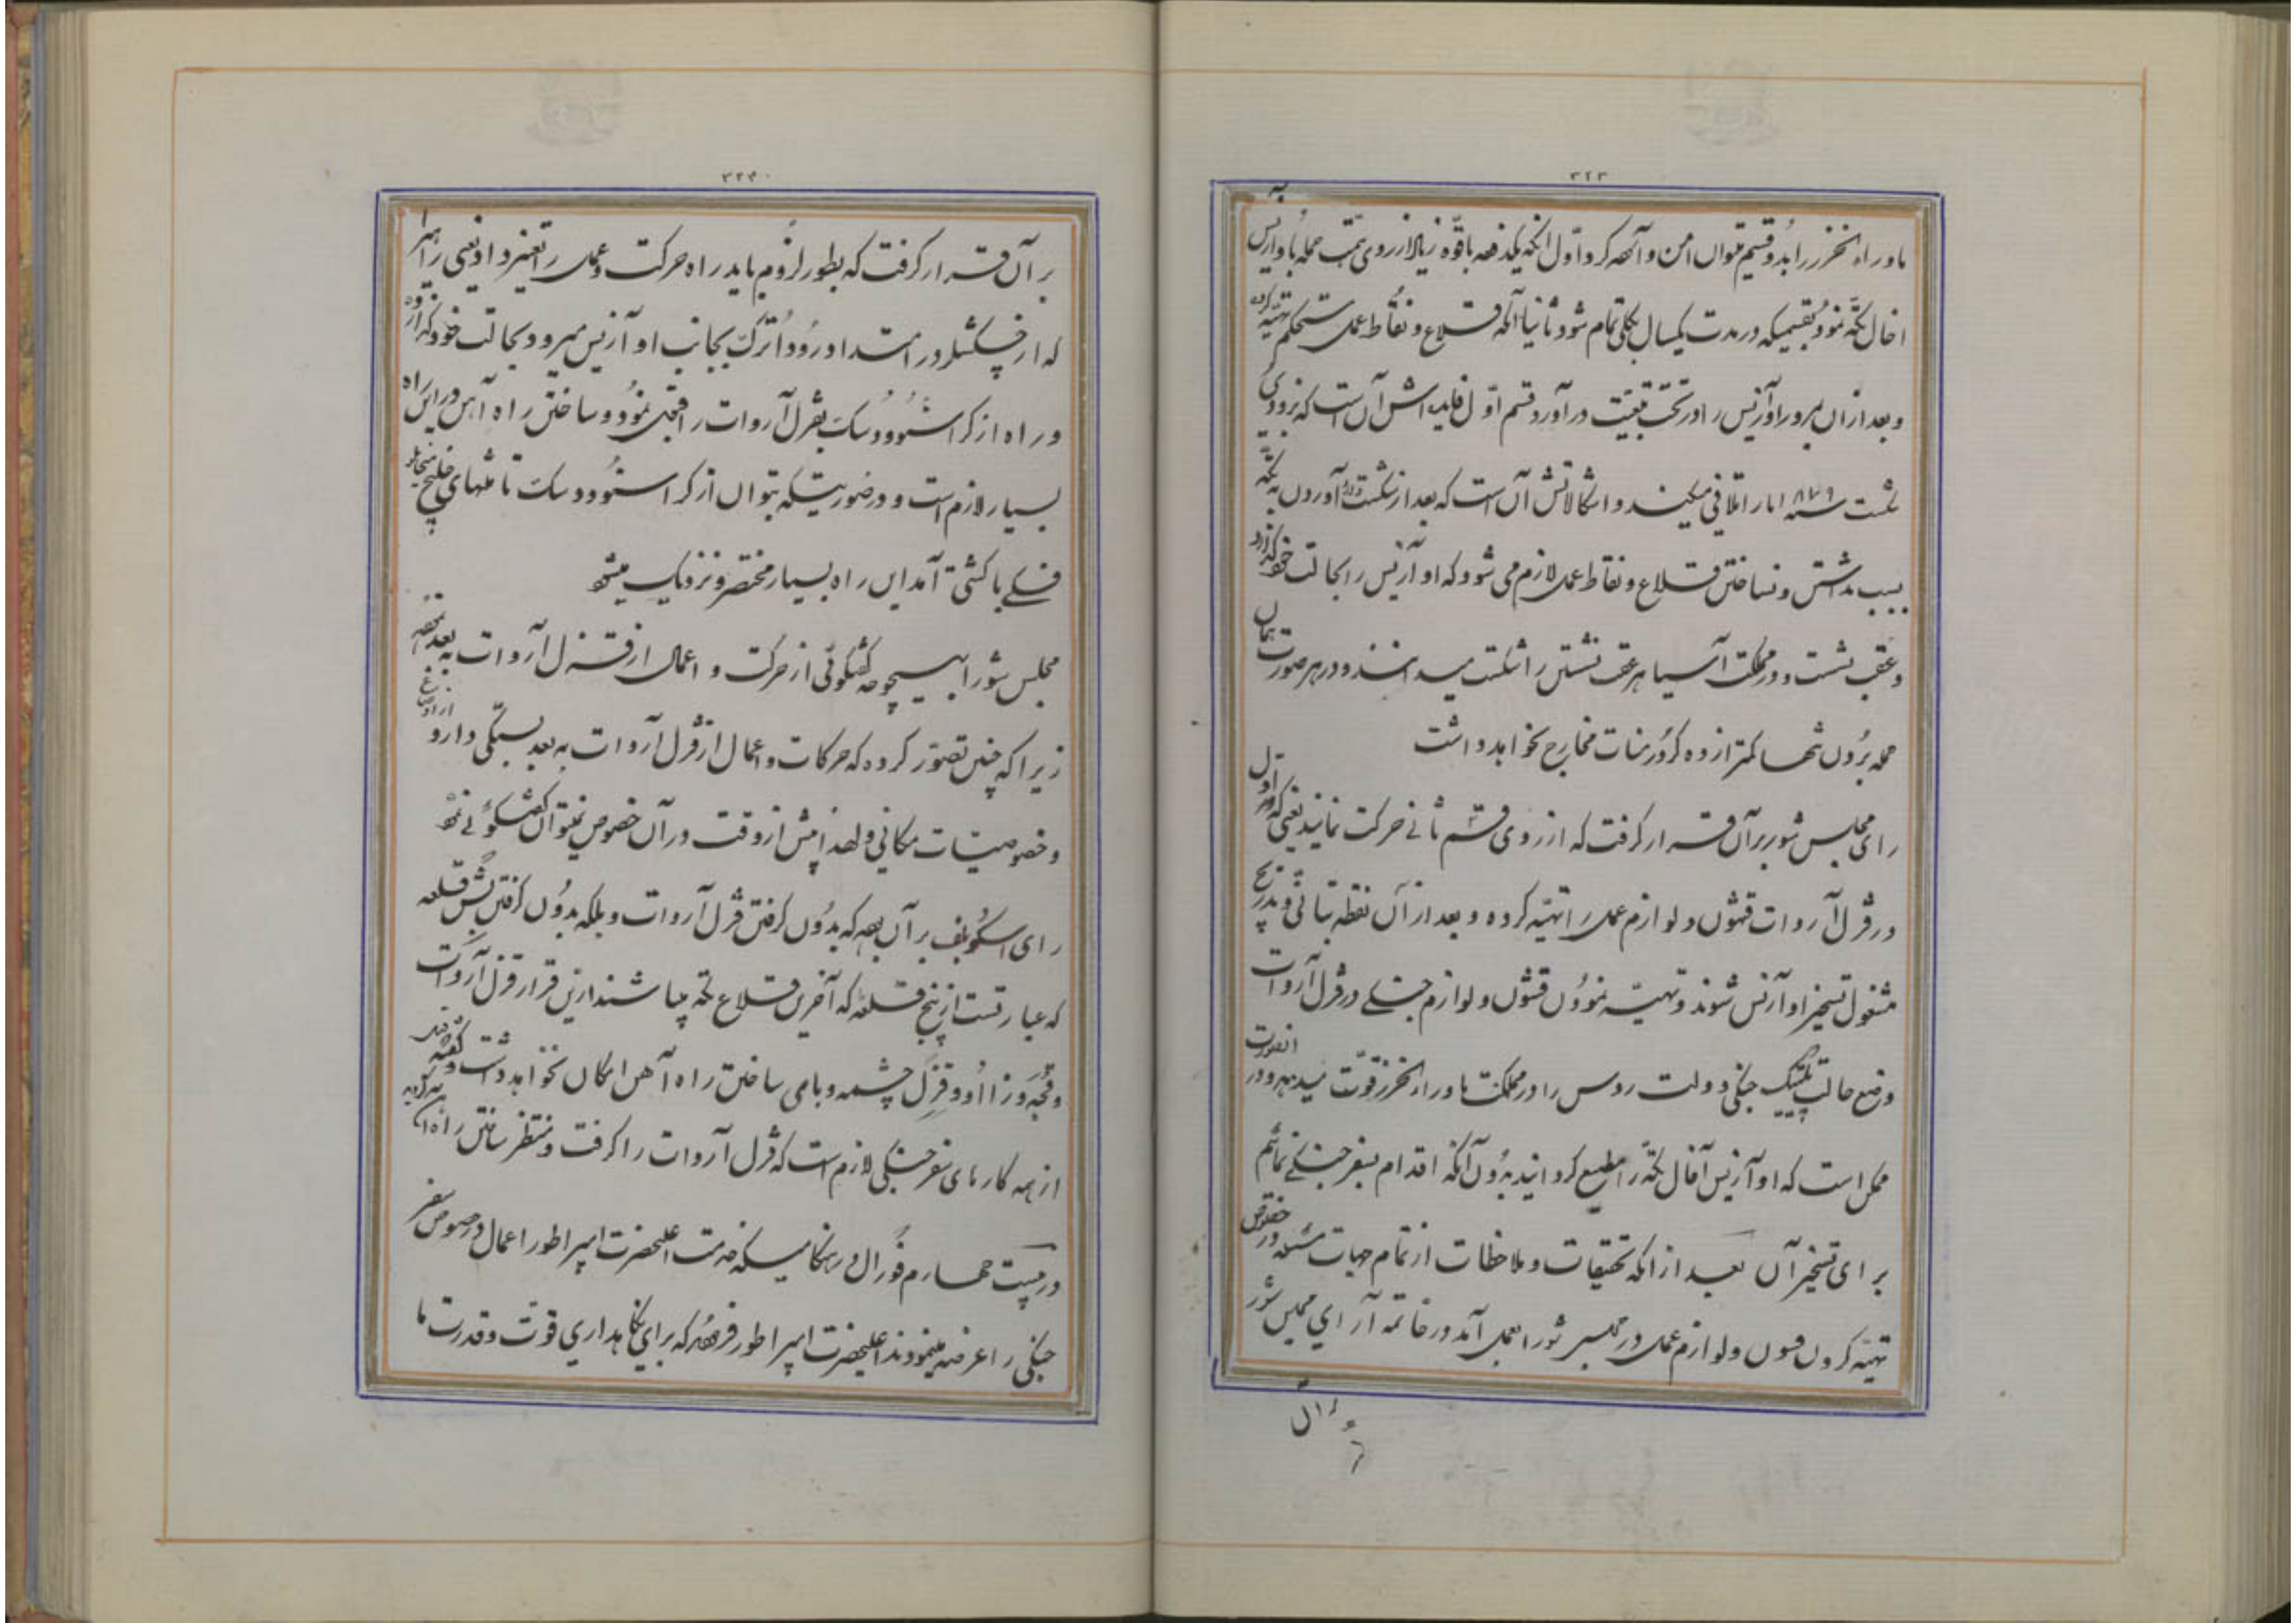 ۳۲۳
ماوراء الخزر را بدو قسم میتوان امن و آسوده کرد اول آنکه یکدفعه با قوه زیاد از روی همت حمله باوآزیس به
اخال تکه نمود بقسمیکه در مدت یکسال بکلی تمام شود ثانیاً آنکه قلاع و نقاط عملی مستحکم تهیه کرده
و بعد از آن بمرور اوآزیس را در تحت تبعیت درآورد قسم اول فایده‌اش آن است که بزودی
شکست سنه ۱۸۷۹ ما را تلافی میکند و اشکالاتش آن است که بعد از شکست آوردن به تکه
بسبب نداشتن و نساختن قلاع و نقاط عملی لازم می شود که اوآزیس را بحالت خود گذارد
و عقب نشست و در مملکت آسیا هر عقب نشستن را شکست میدانند و در هر صورت همان
حمله بردن تنها کمتر از ده کرور منات مخارج نخواهد داشت
رای مجلس شور بر آن قرار گرفت که از روی قسم ثانی حرکت نمایند یعنی که در اول
در قزل آروات قشون و لوازم عملی را تهیه کرده و بعد از آن نقطه بتأنی و بتدریج
مشغول تسخیر اوآزیس شوند و تهیه نمودن قشون و لوازم جنگی در قزل آروات
وضع حالت پلتیک جنگی دولت روس را در مملکت ماوراء الخزر قوت میدهد و در آنصورت
ممکن است که اوآزیس آخال تکه را مطیع گردانید بدون آنکه اقدام بسفر جنگی نمائیم
برای تسخیر آن بعد از آنکه تحقیقات و ملاحظات از تمام جهات مسئله در خصوص
تهیه کردن قشون و لوازم عملی در مجلس شورا بعمل آمد در خاتمه آرای مجلس شور
بر آن
۳۲۴
بر آن قرار گرفت که بطور لزوم باید راه حرکت و عملی را تغییر داد یعنی راهی را
که از چکشلر در امتداد رود اترک بجانب اوآزیس میرود بحالت خود گذارده
و راه از کراسنوودسک بقزل آروات را قبول نمود و ساختن راه آهن در این راه
بسیار لازم است و در صورتیکه بتوان از کراسنوودسک تا منتهای خلیج میخایلو
فسکی با کشتی آمد این راه بسیار مختصر و نزدیک میشود
مجلس شورا بهیچوجه گفتگوئی از حرکت و اعمال از قزل آروات به بعد نکرده
زیرا که چنین تصور کرده که حرکات و اعمال از قزل آروات به بعد بستگی دارد
و خصوصیات مکانی و لهذا پیش از وقت در آن خصوص نمیتوان گفتگوئی نمود
رای اسکوبلف بر آن بود که بدون گرفتن قزل آروات و بلکه بدون گرفتن بش قلعه
که عبارتست از پنج قلعه که آخرین قلاع تکه میباشند ازین قرار قزل آروات
و قزل چشمه و بامی ساختن راه آهن امکان نخواهد داشت و گفته
از همه کارهای سفر جنگی لازم است که قزل آروات را گرفت و منتظر ساختن راه آهن
در بیست چهارم فورال در هنگامیکه خدمت اعلیحضرت امپراطور اعمال در خصوص سفر
جنگی را عرضه مینمودند اعلیحضرت امپراطور فرمود که برای نگاهداری قوت و قدرت ما